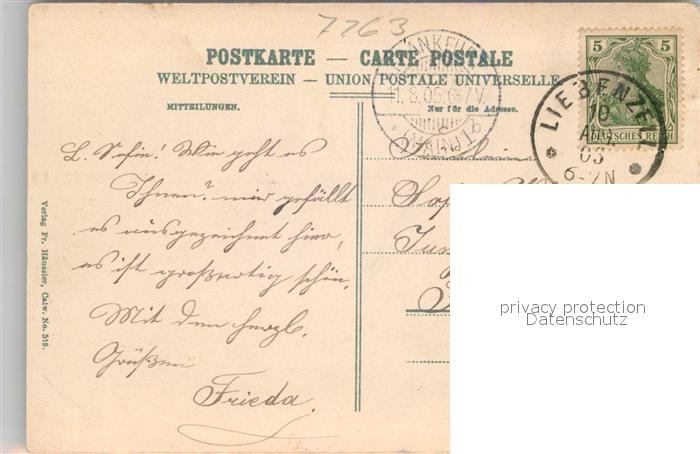 7763
POSTKARTE — CARTE POSTALE
WELTPOSTVEREIN — UNION POSTALE UNIVERSELLE
MITTEILUNGEN.
Nur für die Adresse.
11.8.05.6-7V.
LIEBENZELL
10
AUG
05
6-7N
5 5
DEUTSCHES REICH
L. Sofie! Wie geht es
Ihnen? mir gefällt
es ausgezeichnet hier,
es ist großartig schön.
Mit den herzl.
Grüßen
Frieda.
Verlag Fr. Häussler, Calw. No. 519.
privacy protection
Datenschutz